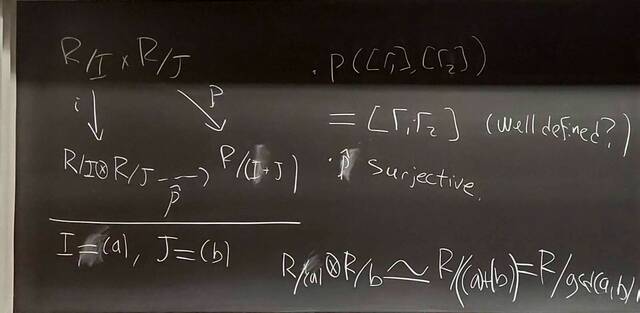 R/I × R/J
i
p
R/I ⊗ R/J ----> R/(I+J)
p̂
I = (a), J = (b)
· p([r₁],[r₂])
= [r₁r₂] (well defined?)
· p̂ surjective.
R/(a) ⊗ R/b ≃ R/((a)+(b)) = R/gcd(a,b)